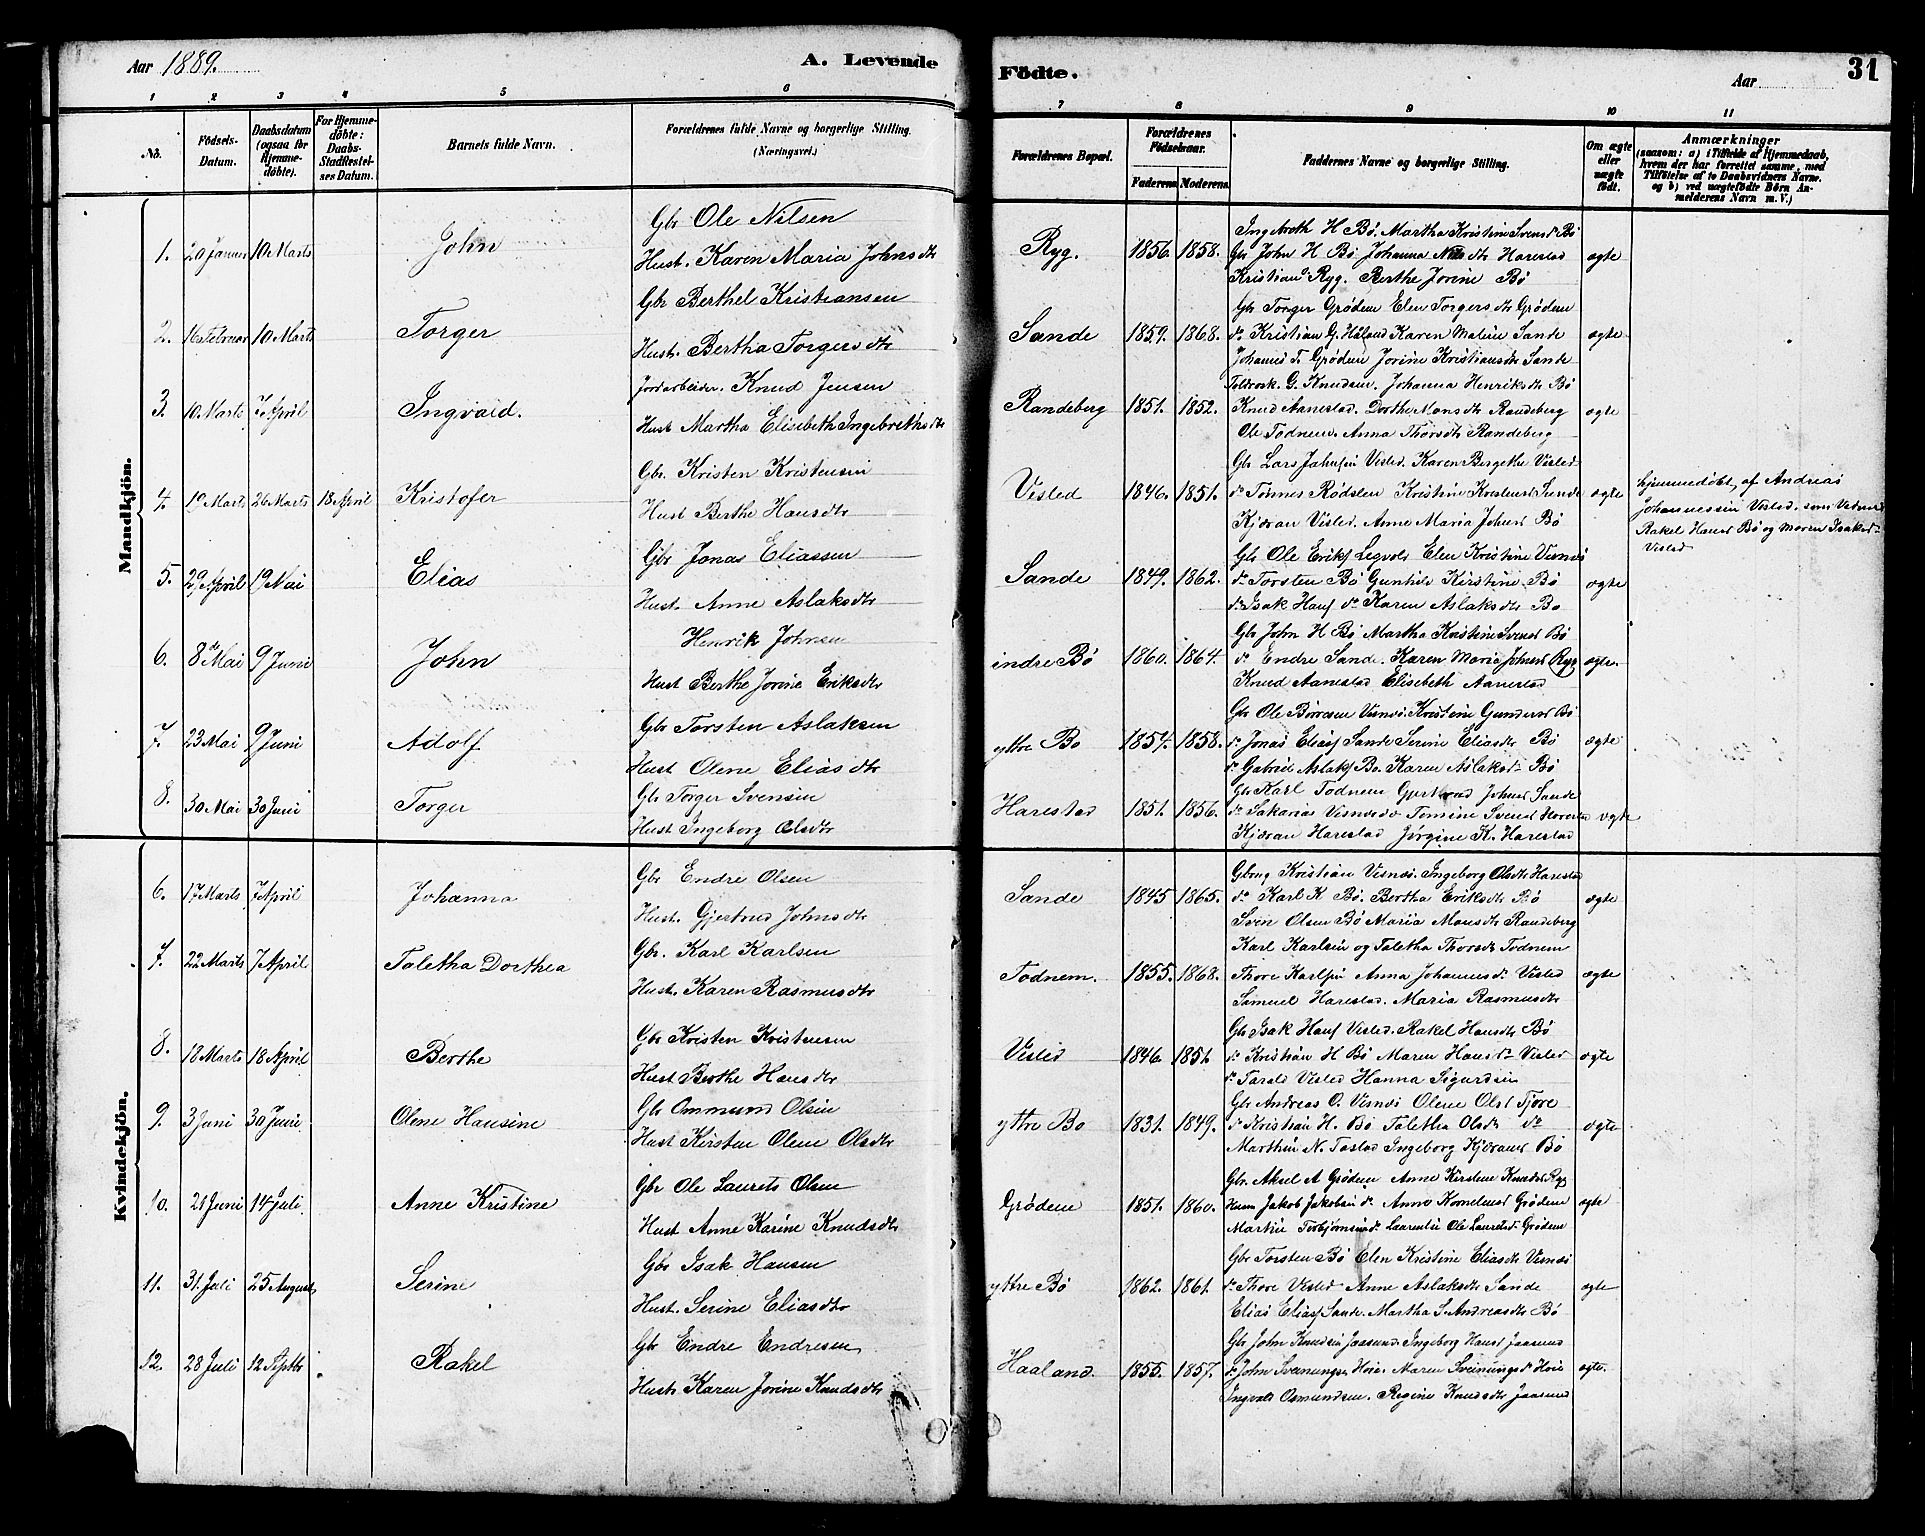 Aar 1889. A. Levende Födte. Aar 31
1 2 3 4 5 6 7 8 9 10 11
No.
Födsels-Datum.
Daabsdatum (ogsaa för Hjemme-döbte).
For Hjemme-döbte: Daabs-Stadfæstel-ses Datum.
Barnets fulde Navn.
Forældrenes fulde Navne og borgerlige Stilling. (Næringsvei.)
Forældrenes Bopæl.
Forældrenes Födselsaar.
Faderens. Moderens.
Faddernes Navne og borgerlige Stilling.
Om ægte eller uægte födt.
Anmærkninger
(saasom: a) i Tilfælde af Hjemmedaab,
hvem der har forrettet samme, med
Tilföielse af to Daabsvidners Navne.
og b) ved uægtefödte Börn An-
melderens Navn m. V.)
Mandkjön.
1. 20 Januar 10 Marts John
Gbr Ole Nilsen
Hust. Karen Maria Johnsdtr
Ryg. 1856. 1858.
H Bö. Martha Kristine Svensd Bö
Gbr John H Bö Johanna Nilsdtr Harestad
Kristian Ryg. Berthe Jorine Bö
ægte
2. 16 Februar 10 Marts Torger
Gbr Berthel Kristiansen
Hust. Bertha Torgersdtr
Sande 1859. 1868.
Gbr Torger Grödem Elen Torgersdtr Grödem
do Kristian G. Håland Karen Malene Sande
Johannes T. Grödem Jorine Kristiansdtr Sande
ægte
3. 10 Marts 7 April Ingvald.
Jordarbeider. Knud Jensen
Hust Martha Elisebeth Ingebrethsdtr
Randeberg 1851. 1852.
G. Knudsen. Johanna Henriksdtr Bö
Knud Aanestad. Dorthe Monsdtr Randeberg
Ole Todnem. Anna Thorsdtr Randeberg
ægte
4. 19 Marts 26 Marts 18 April Kristofer
Gbr. Kristen Kristensen
Hust Berthe Hansdtr
Visted 1846. 1851.
Gbr Lars Visted. Karen Bergethe Visted
do Tönnes Rödsten Kristine Kristensd Sunde
Kjöran Visted. Anne Maria Johnsd Bö
ægte
hjemmedöbt af Andreas
Johannessen Visted. som Vidner
Rakel Hansd Bö og Maren Isaksd
Visted
5. 29 April 19 Mai Elias
Gbr Jonas Eliassen
Hust. Anne Aslaksdtr
Sande 1849. 1862.
Gbr Ole Eriks Elen Kristine Visnes
do Torsten Bö Gunhild Kirstine Bö
do Isak Hans do Karen Aslaksdtr Bö
ægte
6. 8de Mai 9 Juni John
Henrik Johnsen
Hust Berthe Jorine Eriksdtr
indre Bö 1860. 1864.
Gbr John H Bö Martha Kristine Svensd Bö
do Endre Sande. Karen Maria Johnsd Ryg
Knud Aanestad Elisebeth Aanestad
ægte.
7. 23 Mai 9 Juni Adolf
Gbr Torsten Aslaksen
Hust Olene Eliasdtr
yttre Bö 1854. 1858.
Gbr Ole Börresen Visnes. Kristine Gundersd Bö
do Jonas Elias Sande Serine Eliasdtr Bö
do Gabriel Aslaks Bö. Karen Aslaksd Bö
ægte
8. 30 Mai 30 Juni Torger
Gbr Torger Svensen
Hust Ingeborg Olsdtr
Harestad 1851. 1856.
Gbr Karl Todnem Gjertrud Johnsd Sande
do Sakarias Visnes do Tomine Svensd Harestad
Kjöran Harestad Jörgine K. Harestad
ægte
Kvindekjön.
6. 17 Marts 7 April Johanna
Gbr Endre Olsen
Hust. Gjertrud Johnsdtr
Sande 1845 1865.
Kristian Visnes. Ingeborg Olsdtr Harestad
do Karl K Bö. Bertha Eriksdtr Bö
Sven Olsen Bö Maria Monsdtr Randeberg
ægte
7. 22 Marts 7 April Taletha Dorthea
Gbr. Karl Karlsen
Hust. Karen Rasmusdtr
Todnem. 1855. 1868.
Karl Karlsen og Taletha Thorsdtr Todnem
Thore Karlsen Anna Johannesd Visted
Samuel Harestad. Maria Rasmusdtr
ægte
8. 18 Marts 18 April Berthe
Gbr Kristen Kristensen
Hust Berthe Hansdtr
Visted 1846. 1851
Gbr Isak Hans Visted. Rakel Hansdtr Bö
do Kristian H Bö Maren Hansd Visted
do Tarald Visted Hanna Sigurdsen
ægte
9. 3 Juni 30 Juni Olene Hansine
Gbr Ommund Olsen
Hust Kirsten Olene Olsdtr
yttre Bö 1831. 1849.
Gbr Andreas O. Visnes Olene Olsd Tjore
do Kristian H. Bö Taletha Olsdtr do
Marthin N. Tastad Ingeborg Kjöransd Bö
ægte
10. 21 Juni 14 Juli Anne Kristine
Gbr Ole Laurets Olsen
Hust Anne Karine Knudsdtr
Grödem 1851. 1860.
Gbr. Aksel A Grödem Anne Kirstene Knudsd Ryg
Jakob Jakobsen do Anne Kornelensd Grödem
Martin Torbjörnsen do Laurentse Ole Lauretsd Grödem
ægte
11. 31 Juli 25 August Serine
Gbr Isak Hansen
Hust. Serine Eliasdtr
yttre Bö 1862. 1861.
Gbr Torsten Bö Elen Kristine Eliasdtr Visnes
do Thore Visted Anne Aslaksdtr Sande
Elias Elias Sande. Martha S. Andreasdtr Bö
ægte
12. 28 Juli 12 Septbr Rakel
Gbr Endre Endresen
Hust. Karen Jorine Knudsdtr
Haaland. 1855. 1857.
Gbr John Knudsen Jaasund Ingeborg Hansd Jaasund
do John Sveinungs Hoie. Maren Sveinungsd Hoie
Ingvald Osmundsen. Regine Knudsdtr Jaasund
ægte.